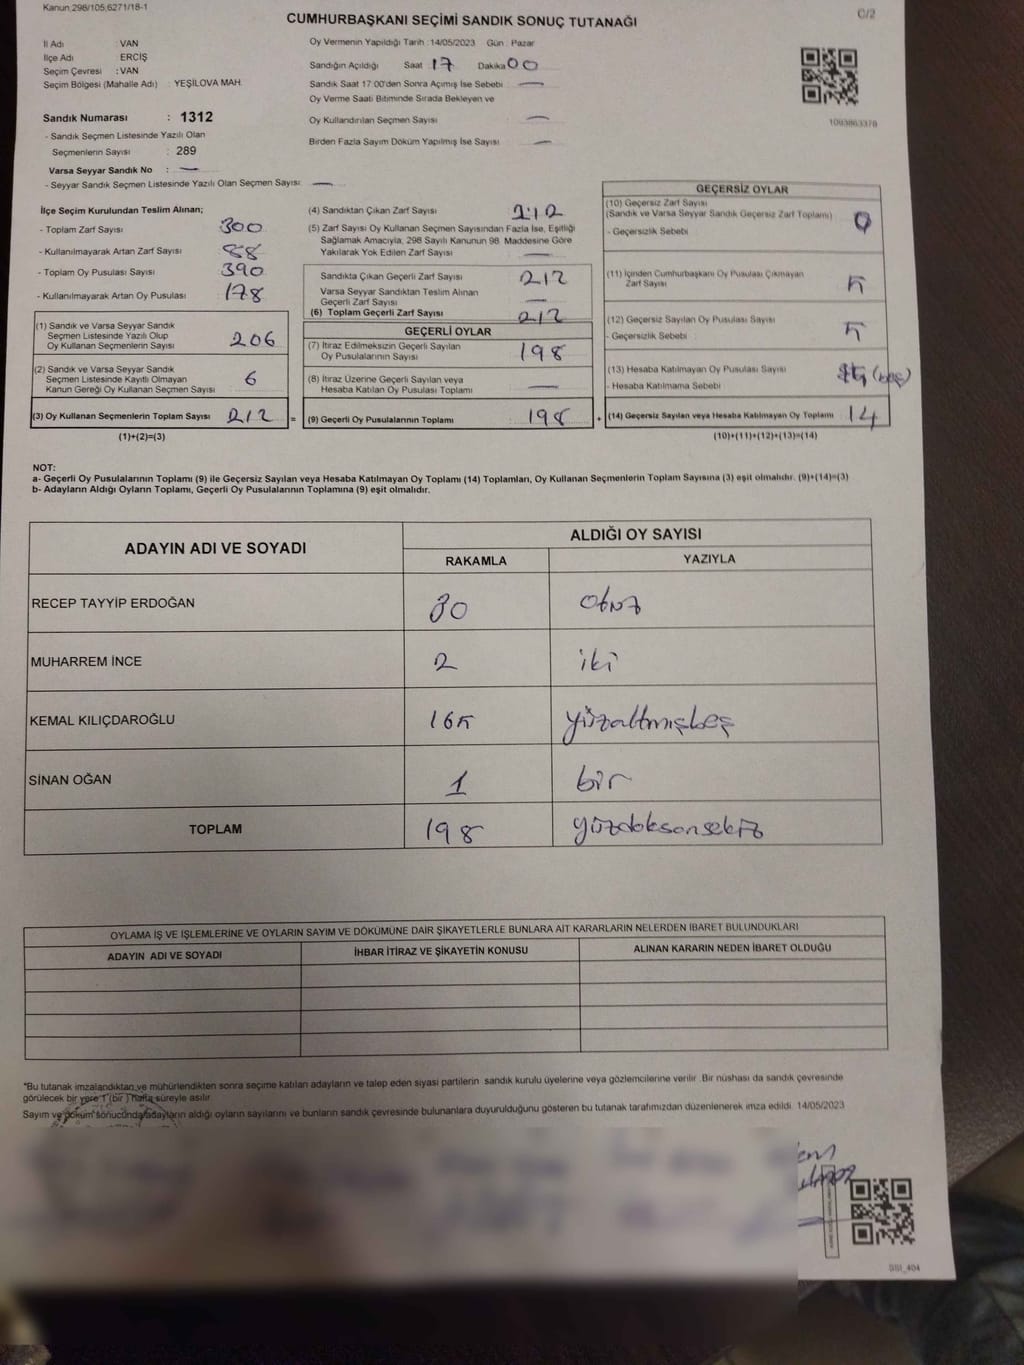 Kanun,298/105,6271/18-1
CUMHURBAŞKANI SEÇİMİ SANDIK SONUÇ TUTANAĞI
C/2
İl Adı : VAN
İlçe Adı : ERCİŞ
Seçim Çevresi : VAN
Seçim Bölgesi (Mahalle Adı) : YEŞİLOVA MAH.
Sandık Numarası : 1312
- Sandık Seçmen Listesinde Yazılı Olan
Seçmenlerin Sayısı : 289
Varsa Seyyar Sandık No : —
- Seyyar Sandık Seçmen Listesinde Yazılı Olan Seçmen Sayısı: —
Oy Vermenin Yapıldığı Tarih :14/05/2023 Gün : Pazar
Sandığın Açıldığı Saat 17 Dakika 00
Sandık Saat 17:00'den Sonra Açımış İse Sebebi —
Oy Verme Saati Bitiminde Sırada Bekleyen ve
Oy Kullandırılan Seçmen Sayısı —
Birden Fazla Sayım Döküm Yapılmış İse Sayısı —
1093863379
İlçe Seçim Kurulundan Teslim Alınan;
- Toplam Zarf Sayısı 300
- Kullanılmayarak Artan Zarf Sayısı 88
- Toplam Oy Pusulası Sayısı 390
- Kullanılmayarak Artan Oy Pusulası 178
(1) Sandık ve Varsa Seyyar Sandık
Seçmen Listesinde Yazılı Olup
Oy Kullanan Seçmenlerin Sayısı 206
(2) Sandık ve Varsa Seyyar Sandık
Seçmen Listesinde Kayıtlı Olmayan
Kanun Gereği Oy Kullanan Seçmen Sayısı 6
(3) Oy Kullanan Seçmenlerin Toplam Sayısı 212 =
(1)+(2)=(3)
(4) Sandıktan Çıkan Zarf Sayısı 212
(5) Zarf Sayısı Oy Kullanan Seçmen Sayısından Fazla İse, Eşitliği
Sağlamak Amacıyla, 298 Sayılı Kanunun 98. Maddesine Göre
Yakılarak Yok Edilen Zarf Sayısı —
Sandıkta Çıkan Geçerli Zarf Sayısı 212
Varsa Seyyar Sandıktan Teslim Alınan
Geçerli Zarf Sayısı —
(6) Toplam Geçerli Zarf Sayısı 212
GEÇERLİ OYLAR
(7) İtiraz Edilmeksizin Geçerli Sayılan
Oy Pusulalarının Sayısı 198
(8) İtiraz Üzerine Geçerli Sayılan veya
Hesaba Katılan Oy Pusulası Toplamı —
(9) Geçerli Oy Pusulalarının Toplamı 198 +
GEÇERSİZ OYLAR
(10) Geçersiz Zarf Sayısı
(Sandık ve Varsa Seyyar Sandık Geçersiz Zarf Toplamı) 0
- Geçersizlik Sebebi
(11) İçinden Cumhurbaşkanı Oy Pusulası Çıkmayan
Zarf Sayısı 5
(12) Geçersiz Sayılan Oy Pusulası Sayısı 5
- Geçersizlik Sebebi
(13) Hesaba Katılmayan Oy Pusulası Sayısı (beş)
- Hesaba Katılmama Sebebi
(14) Geçersiz Sayılan veya Hesaba Katılmayan Oy Toplamı 14
(10)+(11)+(12)+(13)=(14)
NOT:
a- Geçerli Oy Pusulalarının Toplamı (9) ile Geçersiz Sayılan veya Hesaba Katılmayan Oy Toplamı (14) Toplamları, Oy Kullanan Seçmenlerin Toplam Sayısına (3) eşit olmalıdır. (9)+(14)=(3)
b- Adayların Aldığı Oyların Toplamı, Geçerli Oy Pusulalarının Toplamına (9) eşit olmalıdır.
ADAYIN ADI VE SOYADI ALDIĞI OY SAYISI
RAKAMLA YAZIYLA
RECEP TAYYİP ERDOĞAN 30 otuz
MUHARREM İNCE 2 iki
KEMAL KILIÇDAROĞLU 165 yüzaltmışbeş
SİNAN OĞAN 1 bir
TOPLAM 198 yüzdoksonsekiz
OYLAMA İŞ VE İŞLEMLERİNE VE OYLARIN SAYIM VE DÖKÜMÜNE DAİR ŞİKAYETLERLE BUNLARA AİT KARARLARIN NELERDEN İBARET BULUNDUKLARI
ADAYIN ADI VE SOYADI İHBAR İTİRAZ VE ŞİKAYETİN KONUSU ALINAN KARARIN NEDEN İBARET OLDUĞU
"Bu tutanak imzalandıktan ve mühürlendikten sonra seçime katılan adayların ve talep eden siyasi partilerin sandık kurulu üyelerine veya gözlemcilerine verilir. Bir nüshası da sandık çevresinde
görülecek bir yere 1 (bir ) hafta süreyle asılır.
Sayım ve döküm sonucunda adayların aldığı oyların sayılarını ve bunların sandık çevresinde bulunanlara duyurulduğunu gösteren bu tutanak tarafımızdan düzenlenerek imza edildi. 14/05/2023
SSI_404